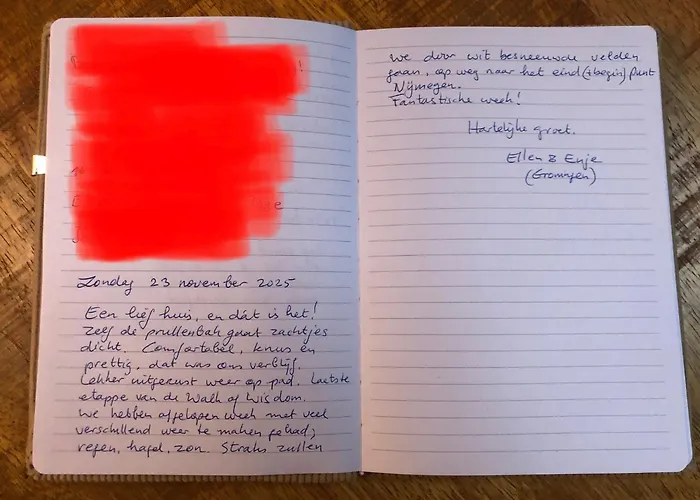 Zondag 23 november 2025
Een lief huis, en dát is het!
Zelfs de prullenbak gaat zachtjes
dicht. Comfortabel, knus en
prettig, dat was ons verblijf.
Lekker uitgerust weer op pad. Laatste
etappe van de Walk of Wisdom.
We hebben afgelopen week met veel
verschillend weer te maken gehad;
regen, hagel, zon. Straks zullen
we door wit besneeuwde velden
gaan, op weg naar het eind (& begin) punt
Nijmegen.
Fantastische week!
Hartelijke groet.
Ellen & Enje
(Groningen)